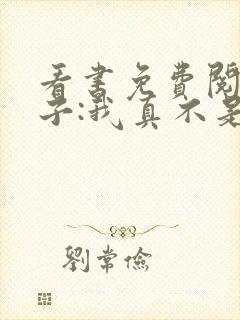 看書免費閱
子:我真不是
劉常儉